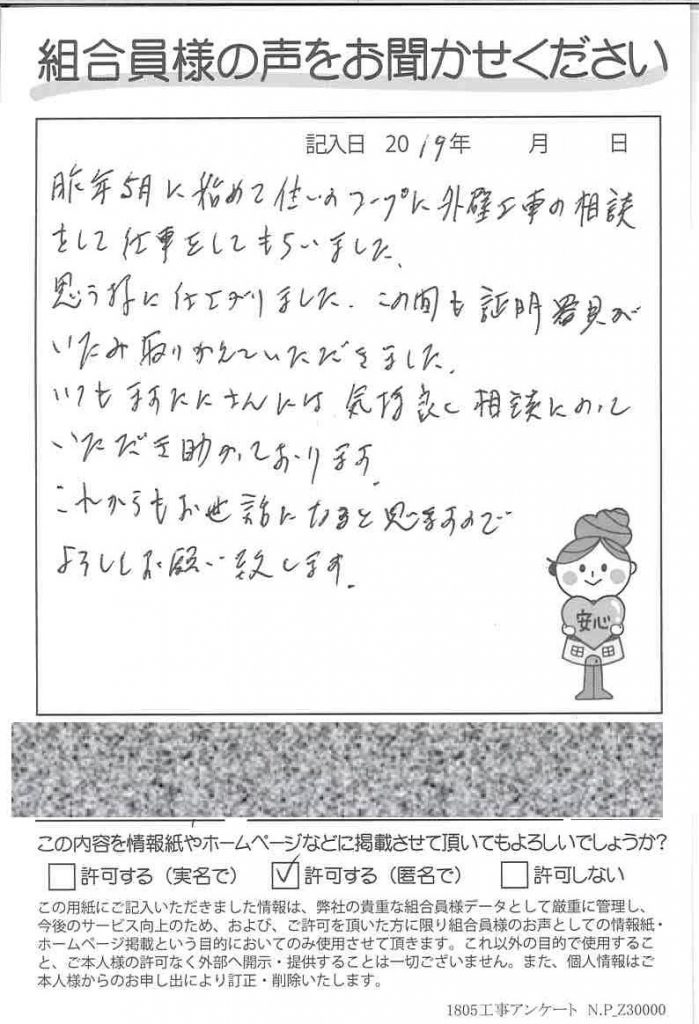 組合員様の声をお聞かせください
記入日 2019年 月 日
昨年5月に始めて住いのコープに外壁工事の相談
をして仕事をしてもらいました。
思う様に仕上がりました。この間も証明器具が
いたみ取りかえていただきました。
いつも さんには気持良く相談にのって
いただき助かっております。
これからもお世話になると思いますので
よろしくお願い致します。
安心
この内容を情報紙やホームページなどに掲載させて頂いてもよろしいでしょうか?
許可する（実名で） 許可する（匿名で） 許可しない
この用紙にご記入いただきました情報は、弊社の貴重な組合員様データとして厳重に管理し、
今後のサービス向上のため、および、ご許可を頂いた方に限り組合員様のお声としての情報紙・
ホームページ掲載という目的においてのみ使用させて頂きます。これ以外の目的で使用するこ
と、ご本人様の許可なく外部へ開示・提供することは一切ございません。また、個人情報はご
本人様からのお申し出により訂正・削除いたします。
1805工事アンケート N.P_Z30000